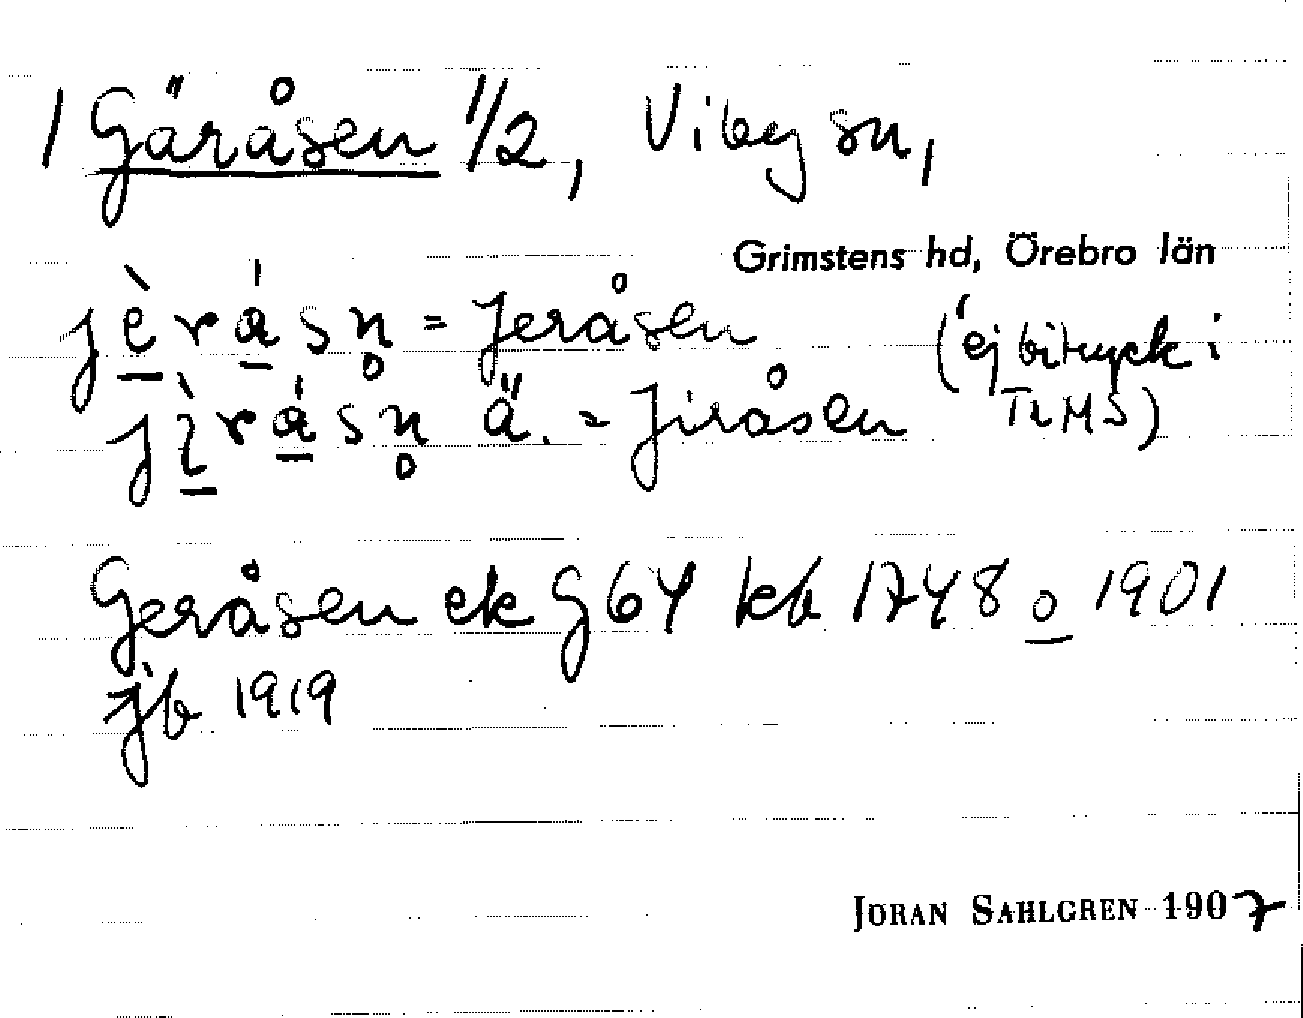 1 Gäråsen 1/2, Viby sn,
Grimstens hd, Örebro län
jèråsn̥ = Jeråsen (ej bitryck i
jìråsn̥ ä. = Jiråsen ThMS)
Geråsen ek G64 kb 1748 o 1901
jb 1919
JÖRAN SAHLGREN 1907